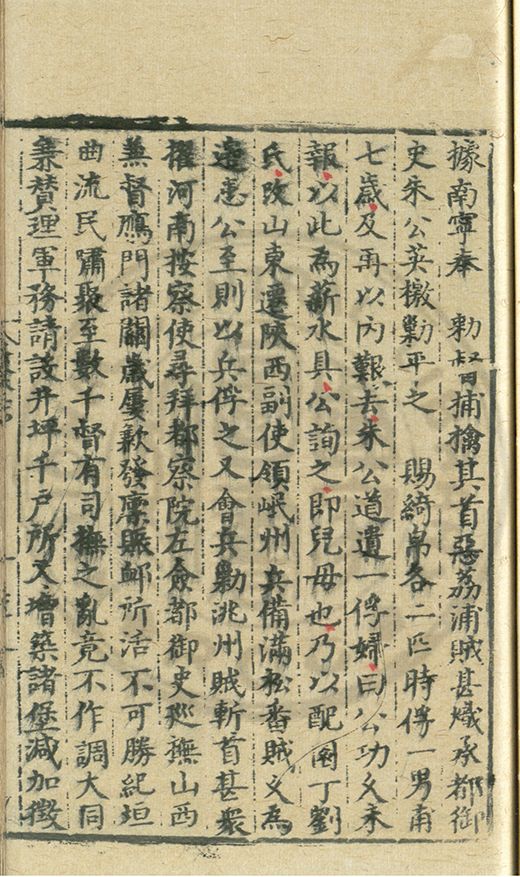 據南寧奉　勑督捕擒其首惡荔浦賊甚熾承都御
史朱公英檄勦平之　賜綺帛各二匹時俘一男甫
七歲及再以內艱去朱公道遺一俘婦曰公功父未
報以此為薪水具公詢之即兒母也乃以配圉丁劉
氏改山東遷陝西副使領岷州兵備滿松番賊乂為
邊患公至則以兵俘之又會兵勦洮州賊斬首甚衆
擢河南按察使尋拜都察院左僉都御史廵撫山西
兼督鴈門諸關歲屢歉發廩賑䘏所活不可勝紀垣
曲流民嘯聚至數千督有司撫之亂竟不作調大同
兼贊理軍務請設井坪千戶所又增築諸堡減加徵